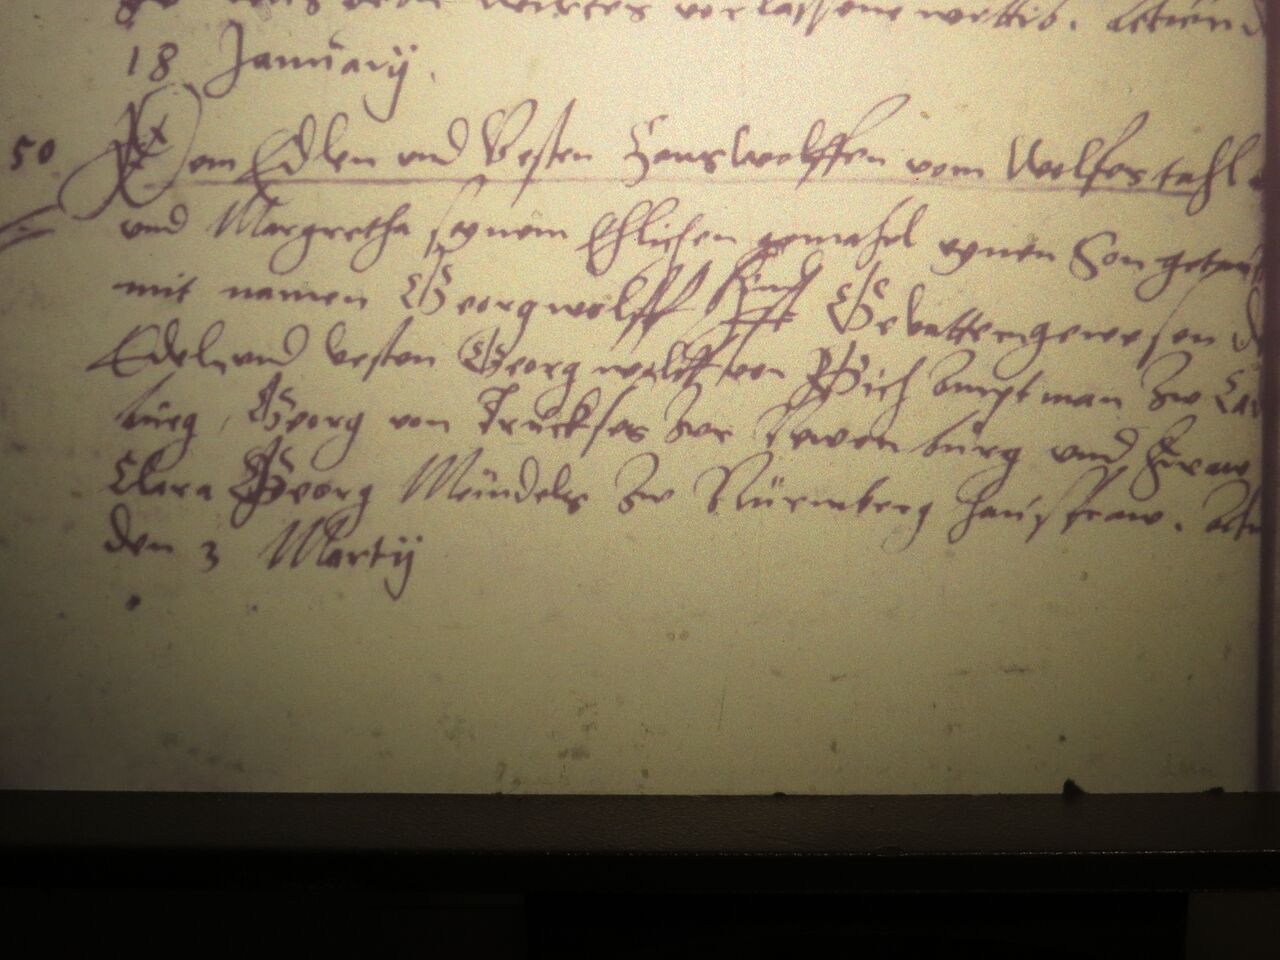 verlassene wittib. Actum
18 January.
50 Dem Edlen und Vesten Hans Wolffen vom Wolfestahl
und Margretha seynem Ehlichen gemahel eynen Son getau
mit namen Georg wolff sind Gevattern gewesen d
Edel und vesten Georg wolff von Ampt man zw
burg, Georg von Truckses zur burg und Fraw
Clara Georg Mendels zw Nürmberg hausfraw. Actu
den 3 Martij